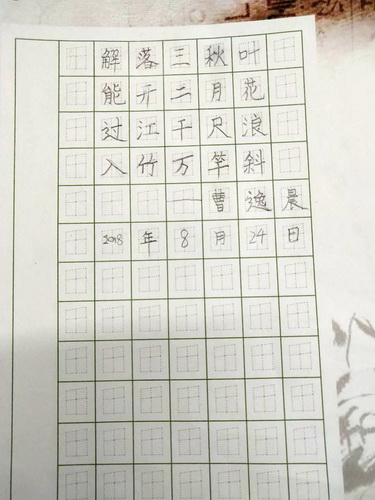 解落三秋叶
能开二月花
过江千尺浪
入竹万竿斜
一曹逸晨
2018年8月24日